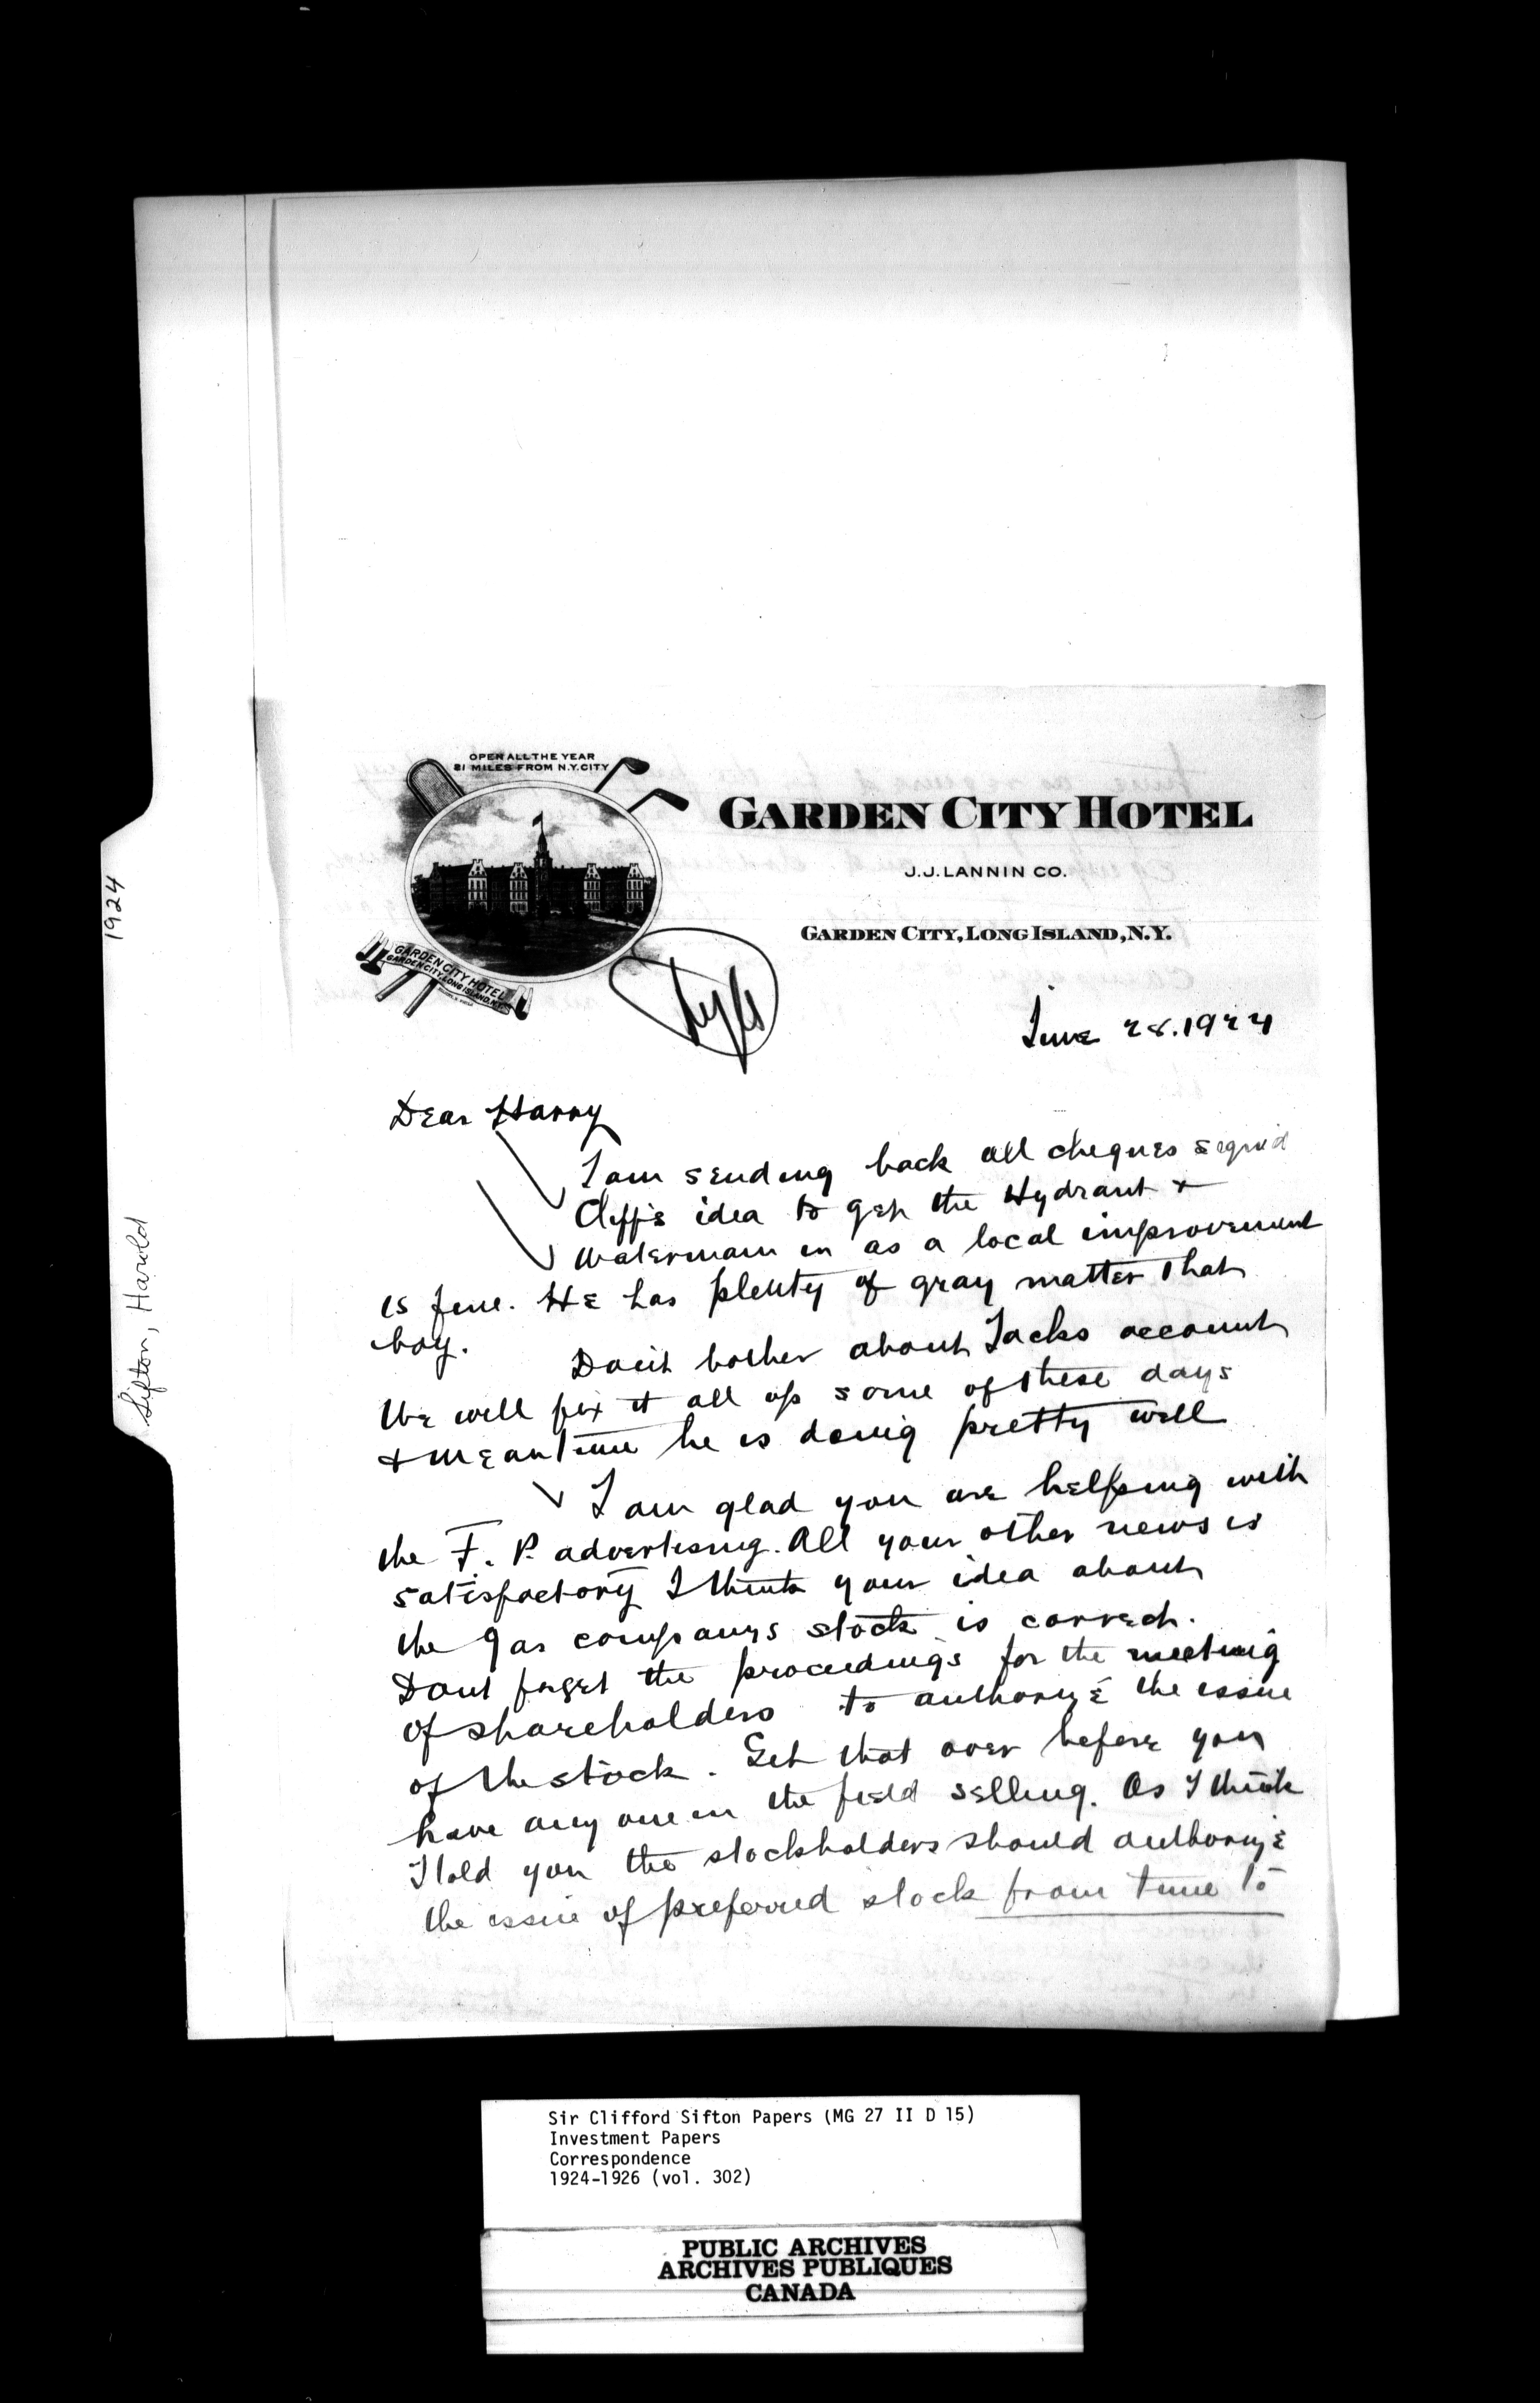 1924
Sifton, Harold
OPEN ALL THE YEAR
21 MILES FROM N.Y. CITY
GARDEN CITY HOTEL
GARDEN CITY, LONG ISLAND, N.Y.
GARDEN CITY HOTEL
J.J. LANNIN CO.
GARDEN CITY, LONG ISLAND, N.Y.
June 28. 1924
Dear Harry
I am sending back all cheques signed
Cliff's idea to get the Hydrant &
Watermain in as a local improvement
is fine. He has plenty of gray matter that
boy.
Don't bother about Jacks account
We will fix it all up some of these days
& meantime he is doing pretty well
I am glad you are helping with
the F. P. advertising. All your other news is
satisfactory I think your idea about
the gas companys stock is correct.
Dont forget the proceedings for the meeting
of shareholders to authorize the issue
of the stock. Get that over before you
have any one in the field selling. As I think
I told you the stockholders should authorize
the issue of preferred stock from time to
Sir Clifford Sifton Papers (MG 27 II D 15)
Investment Papers
Correspondence
1924-1926 (vol. 302)
PUBLIC ARCHIVES
ARCHIVES PUBLIQUES
CANADA